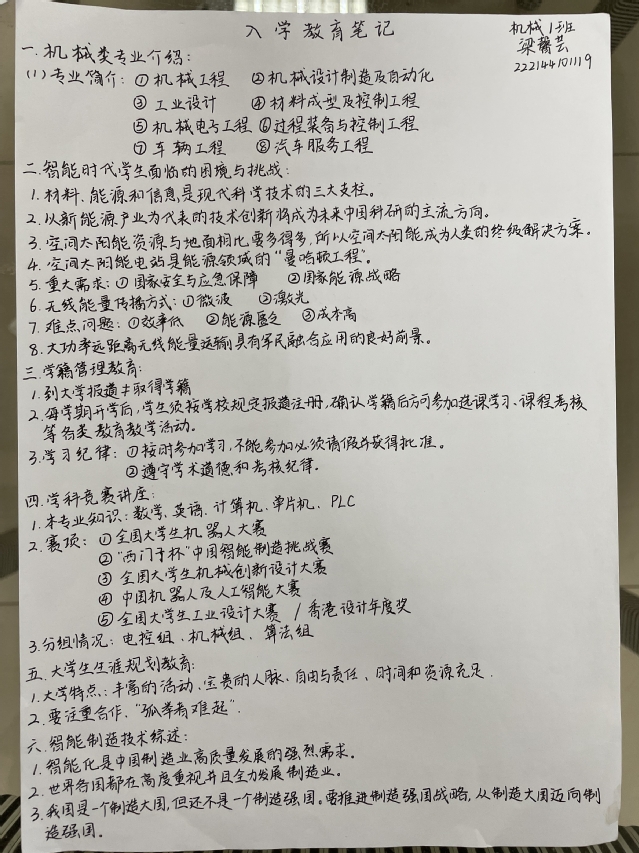 入学教育笔记
机械1班
梁馨芸
222144101119
一.机械类专业介绍:
(1)专业简介:①机械工程 ②机械设计制造及自动化
③工业设计 ④材料成型及控制工程
⑤机械电子工程 ⑥过程装备与控制工程
⑦车辆工程 ⑧汽车服务工程
二.智能时代学生面临的困境与挑战:
1.材料、能源和信息是现代科学技术的三大支柱。
2.以新能源产业为代表的技术创新将成为未来中国科研的主流方向。
3.空间太阳能资源与地面相比要多得多,所以空间太阳能成为人类的终极解决方案。
4.空间太阳能电站是能源领域的“曼哈顿工程”。
5.重大需求:①国家安全与应急保障 ②国家能源战略
6.无线能量传播方式:①微波 ②激光
7.难点问题:①效率低 ②能源匮乏 ③成本高
8.大功率远距离无线能量运输具有军民融合应用的良好前景。
三.学籍管理教育:
1.到大学报道≠取得学籍
2.每学期开学后,学生须按学校规定报道注册,确认学籍后方可参加选课学习、课程考核
等各类教育教学活动。
3.学习纪律:①按时参加学习,不能参加必须请假并获得批准。
②遵守学术道德和考核纪律.
四.学科竞赛讲座:
1.本专业知识:数学、英语、计算机、单片机、PLC
2.赛项:①全国大学生机器人大赛
②“西门子杯”中国智能制造挑战赛
③全国大学生机械创新设计大赛
④中国机器人及人工智能大赛
⑤全国大学生工业设计大赛/香港设计年度奖
3.分组情况:电控组、机械组、算法组
五.大学生生涯规划教育:
1.大学特点:丰富的活动、宝贵的人脉、自由与责任、时间和资源充足.
2.要注重合作,“孤掌难起”.
六.智能制造技术综述:
1.智能化是中国制造业高质量发展的强烈需求。
2.世界各国都在高度重视并且全力发展制造业。
3.我国是一个制造大国,但还不是一个制造强国。要推进制造强国战略,从制造大国迈向制
造强国。